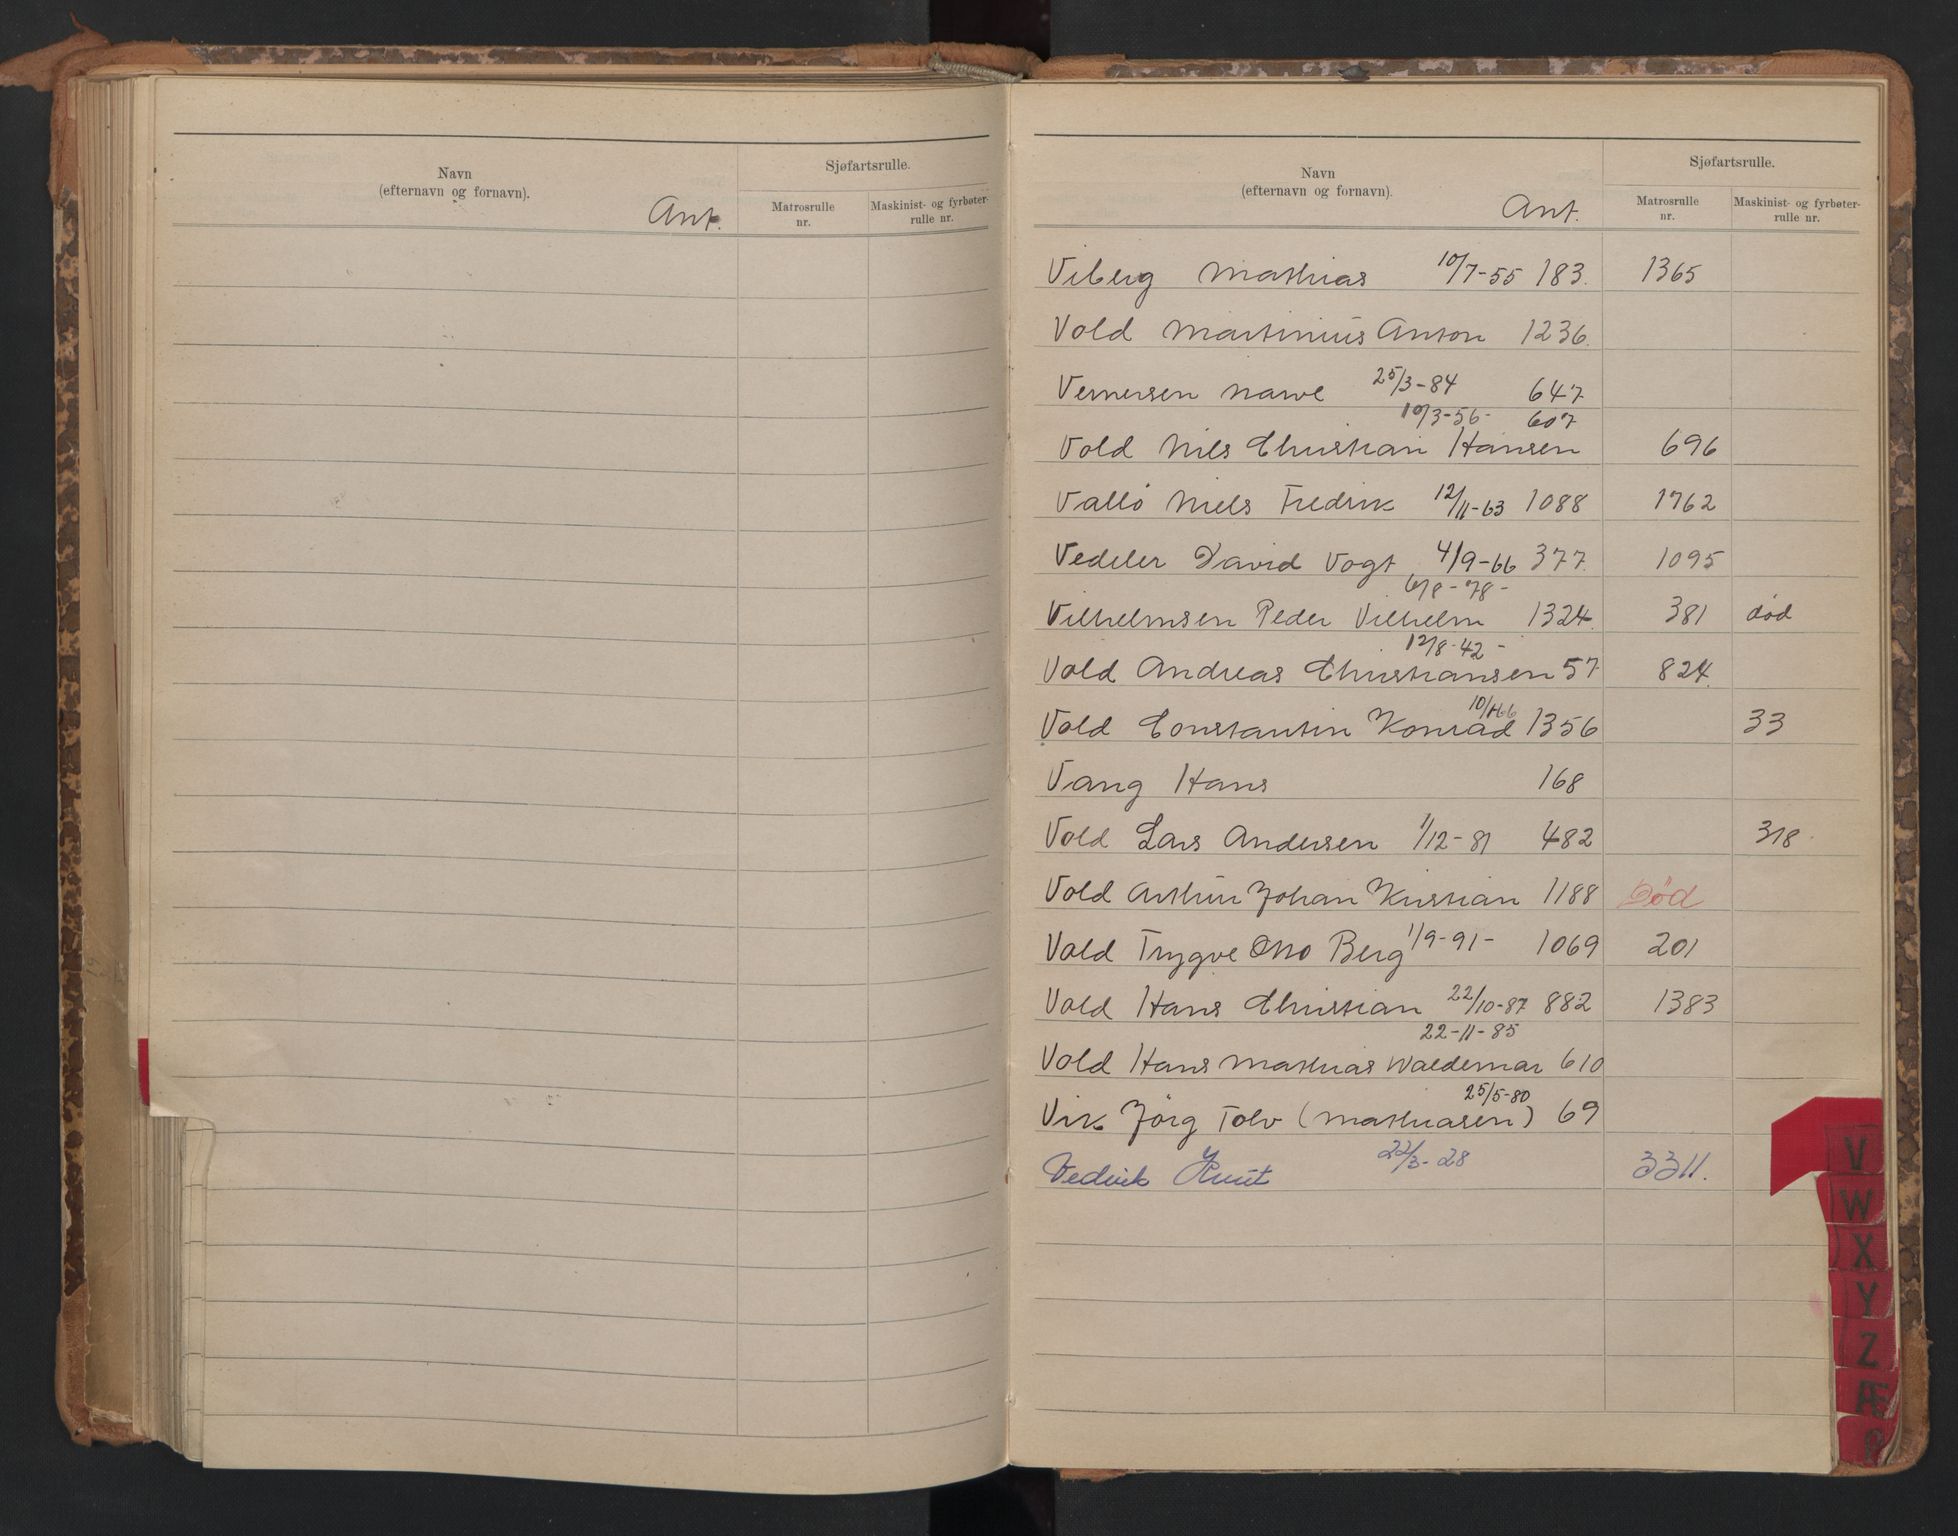 Navn
(efternavn og fornavn).
Ant.
Sjøfartsrulle.
Matrosrulle
nr.
Maskinist- og fyrbøter-
rulle nr.
Navn
(efternavn og fornavn).
Ant.
Sjøfartsrulle.
Matrosrulle
nr.
Maskinist- og fyrbøter-
rulle nr.
Viberg Mathias 10/7-55 183. 1365
Vold Martinius Anton 1236.
Vernersen Narve 25/3-84 647
10/3-56- 607
Vold Nils Christian Hansen 696
Vallö Niels Fredrik 12/11-63 1088 1762
Vedeler David Vogt 4/9-66 377. 1095
6/8-78-
Vilhelmsen Peder Vilhelm 1324. 381 död
12/8-42-
Vold Andreas Christiansen 57 824.
Vold Constantin Konrad 1356 33
Vang Hans 168
Vold Lars Andersen 1/12-81 482 318.
Vold Arthur Johan Kristian 1188 Död
Vold Trygve Otto Berg 1/9-91- 1069 201
Vold Hans Christian 22/10-87 882 1383
22-11-85
Vold Hans Mathias Waldemar 610
25/5-80
Vik Jörg Tolv (Mathiasen) 69
Vedvik Knut 22/3-28 3311.
V
W
X
Y
Z
Æ